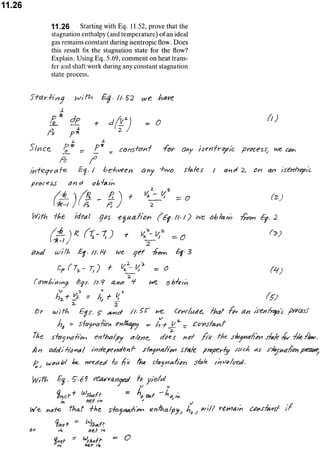 11.26
11.26 Starting with Eq. 11.52, prove that the
stagnation enthalpy (and temperature) of an ideal
gas remains constant during isentropic flow. Does
this result fix the stagnation state for the flow?
Explain. Using Eq. 5.69, comment on heat trans-
fer and shaft work during any constant stagnation
state process.
Starting with Eq. 11.52 we have
dp + d(V²/2) = 0 (1)
Since = constant for any isentropic process, we can
integrate Eq. 1 between any two states 1 and 2 on an isentropic
process and obtain
(k/k-1)(p₂/ρ₂ - p₁/ρ₁) + V₂² - V₁²/2 = 0 (2)
With the ideal gas equation (Eq. 11.1) we obtain from Eq. 2
(k/k-1) R (T₂-T₁) + V₂² - V₁²/2 = 0 (3)
and with Eq. 11.14 we get from Eq. 3
Cp (T₂ - T₁) + V₂² - V₁²/2 = 0 (4)
Combining Eqs. 11.9 and 4 we obtain
h₂ + V₂²/2 = h₁ + V₁²/2 (5)
Or with Eqs. 5 and 11.55 we conclude that for an isentropic process
h₀ = stagnation enthalpy = h + V²/2 = constant
The stagnation enthalpy alone does not fix the stagnation state for the flow.
An additional independent stagnation state property such as stagnation pressure,
would be needed to fix the stagnation state involved.
With Eq. 5.69 rearranged to yield
q net in + w shaft net in = h₀,out - h₀,in
We note that the stagnation enthalpy, h₀, will remain constant if
q net in = w shaft net in
or
q net in = w shaft net in = 0